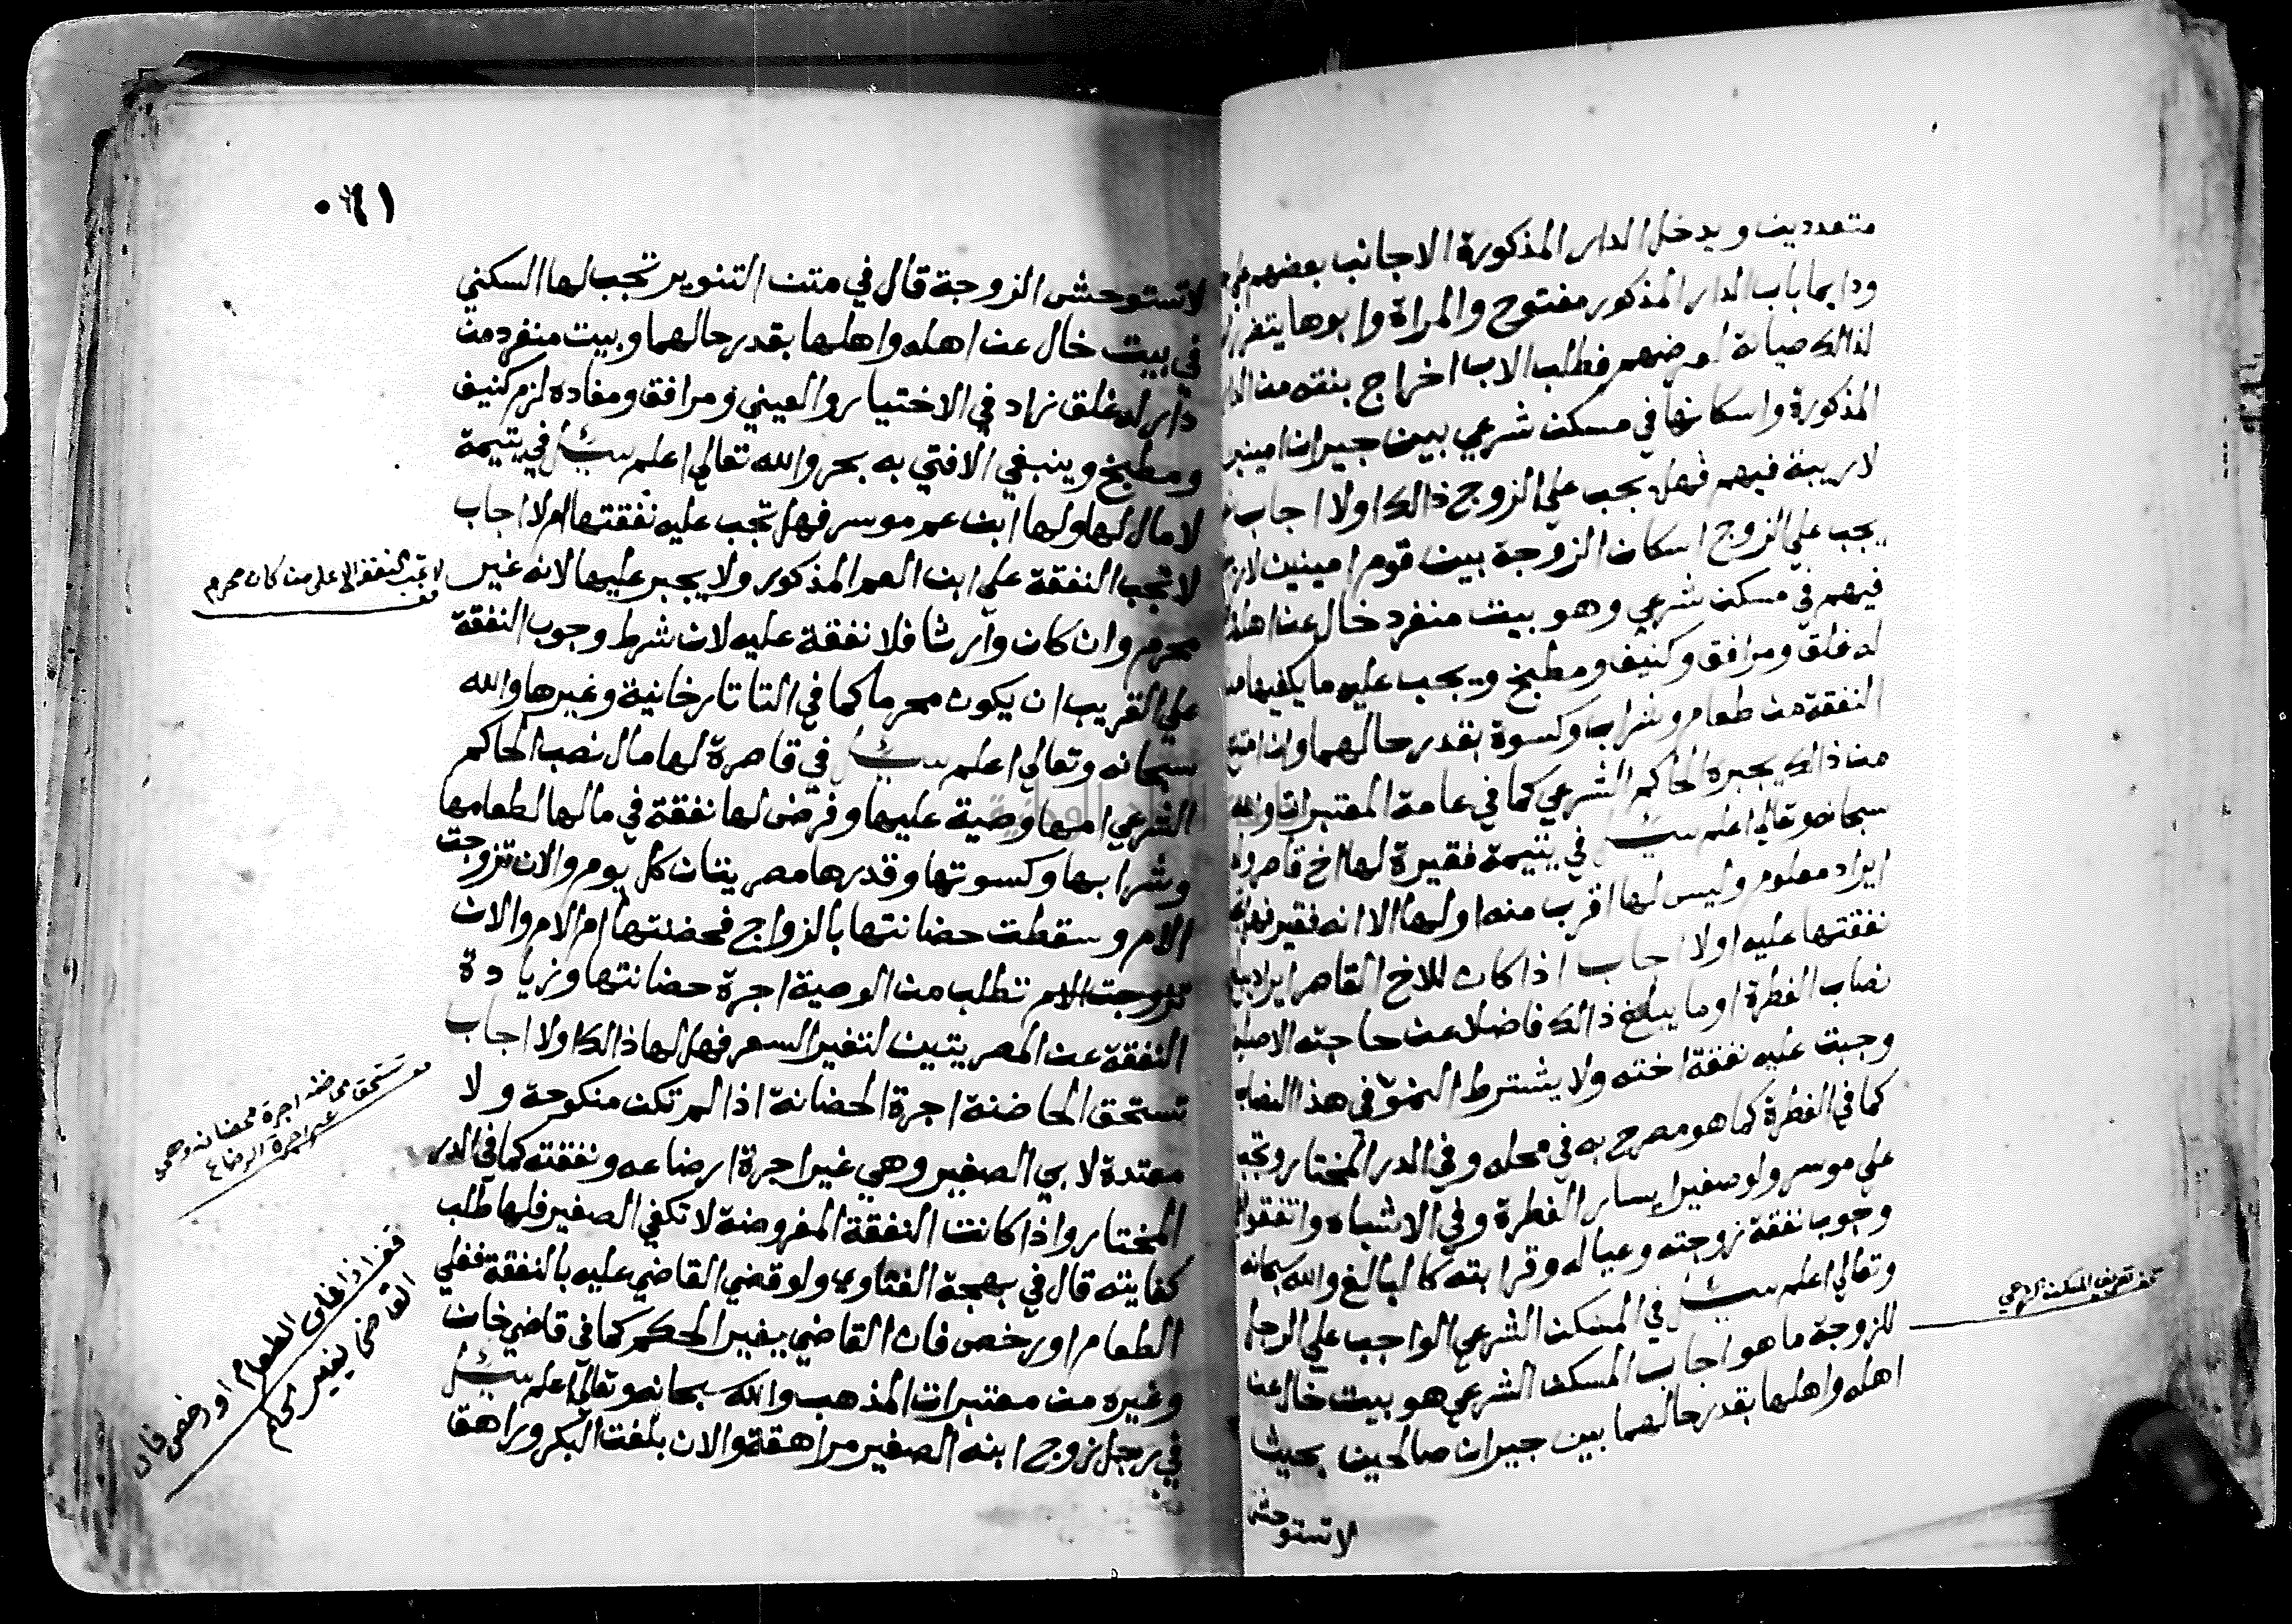 متعددين ويدخل الدار المذكورة الاجانب بعضهم
ودايما باب الدار المذكور مفتوح والمراة وابوها يتضرر
لذالك صيانة لعرضهم فطلب الاب اخراج بنته من الدار
المذكورة واسكانها في مسكن شرعي بين جيران امينين
لا ريبة فيهم فهل يجب علي الزوج ذالك اولا اجاب
يجب علي الزوج اسكان الزوجة بين قوم امينين لا
فيهم في مسكن شرعي وهو بيت منفرد خال عن اهله
له غلق ومرافق وكنيف ومطبخ ويجب عليه ما يكفيها من
النفقة من طعام وشراب وكسوة بقدر حالهما وان امتنع
من ذالك يجبره الحاكم الشرعي كما في عامة المعتبرات والله
سبحانه وتعالي اعلم سئل في يتيمة فقيرة لها اخ قاصر وله
ايراد معلوم وليس لها اقرب منه اولها الا انه فقير فهل
نفقتها عليه اولا اجاب اذا كان للاخ القاصر ايراد يبلغ
نصاب الفطرة اوما يبلغ ذالك فاضلا عن حاجته الاصلية
وجبت عليه نفقة اخته ولا يشترط النمو في هذا النصاب
كما في الفطرة كما هو مصرح به في محله وفي الدر المختار وتجب
علي موسر ولو صغيرا يسار الفطرة وفي الاشباه واتفقوا
وجوب نفقة زوجته وعياله وقرابته كالبالغ والله سبحانه
وتعالي اعلم سئل في المسكن الشرعي الواجب علي الرجل
للزوجة ما هو اجاب المسكن الشرعي هو بيت خال عن
اهله واهلها بقدر حالهما بين جيران صالحين بحيث
لا تستوحش
تعريف المسكن الشرعي
٠٦١
لا تستوحش الزوجة قال في متن التنوير تجب لها السكني
في بيت خال عن اهله واهلها بقدر حالهما وبيت منفرد من
دار له غلق زاد في الاختيار والعيني ومرافق ومفاده لزم كنيف
ومطبخ وينبغي الافتي به بحر والله تعالي اعلم سئل في يتيمة
لا مال لها ولها ابن عم موسر فهل تجب عليه نفقتها ام لا اجاب
لا تجب النفقة علي ابن العم المذكور ولا يجبر عليها لانه غير
محرم وان كان وارثا فلا نفقة عليه لان شرط وجوب النفقة
علي القريب ان يكون محرما كما في التاتارخانية وغيرها والله
سبحانه وتعالي اعلم سئل في قاصرة لها مال نصب الحاكم
الشرعي امها وصية عليها وفرض لها نفقة في مالها لطعامها
وشرابها وكسوتها وقدرها مصريتان كل يوم والان تزوجت
الام وسقطت حضانتها بالزواج فحضنتها ام الام والان
تزوجت الام تطلب من الوصية اجرة حضانتها وزيادة
النفقة عن المصريتين لتغير السعر فهل لها ذالك اولا اجاب
تستحق الحاضنة اجرة الحضانة اذا لم تكن منكوحة ولا
معتدة لابي الصغير وهي غير اجرة ارضاعه ونفقته كما في الدر
المختار واذا كانت النفقة المفروضة لا تكفي الصغير فلها طلب
كفايته قال في بهجة الفتاوي ولو قضي القاضي عليه بالنفقة فغلي
الطعام او رخص فان القاضي يغير الحكم كما في قاضي خان
وغيره من معتبرات المذهب والله سبحانه وتعالي اعلم سئل
في رجل زوج ابنه الصغير مراهقة والان بلغت البكر وراهق
لا تجب النفقة الا علي من كان محرم
تستحق الحاضنه اجرة الحضانه وهي
غير اجرة الرضاع
اذا غلي الطعام او رخص فان
القاضي يغير الحكم